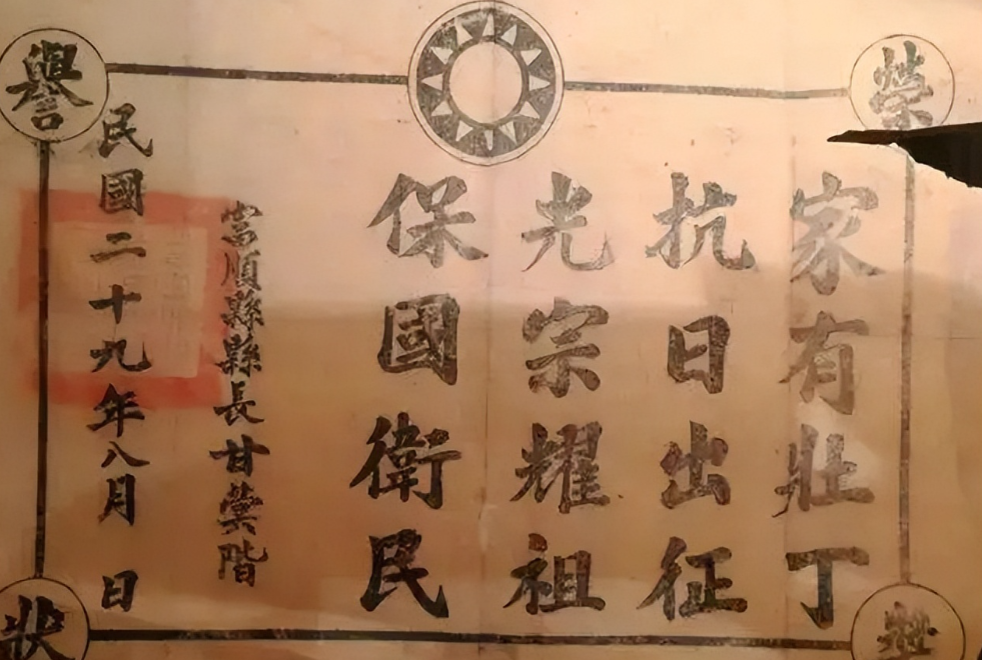 榮譽
家有壯丁
抗日出征
光宗耀祖
保國衛民
富順縣縣長甘蓂階
民國二十九年八月 日
獎狀